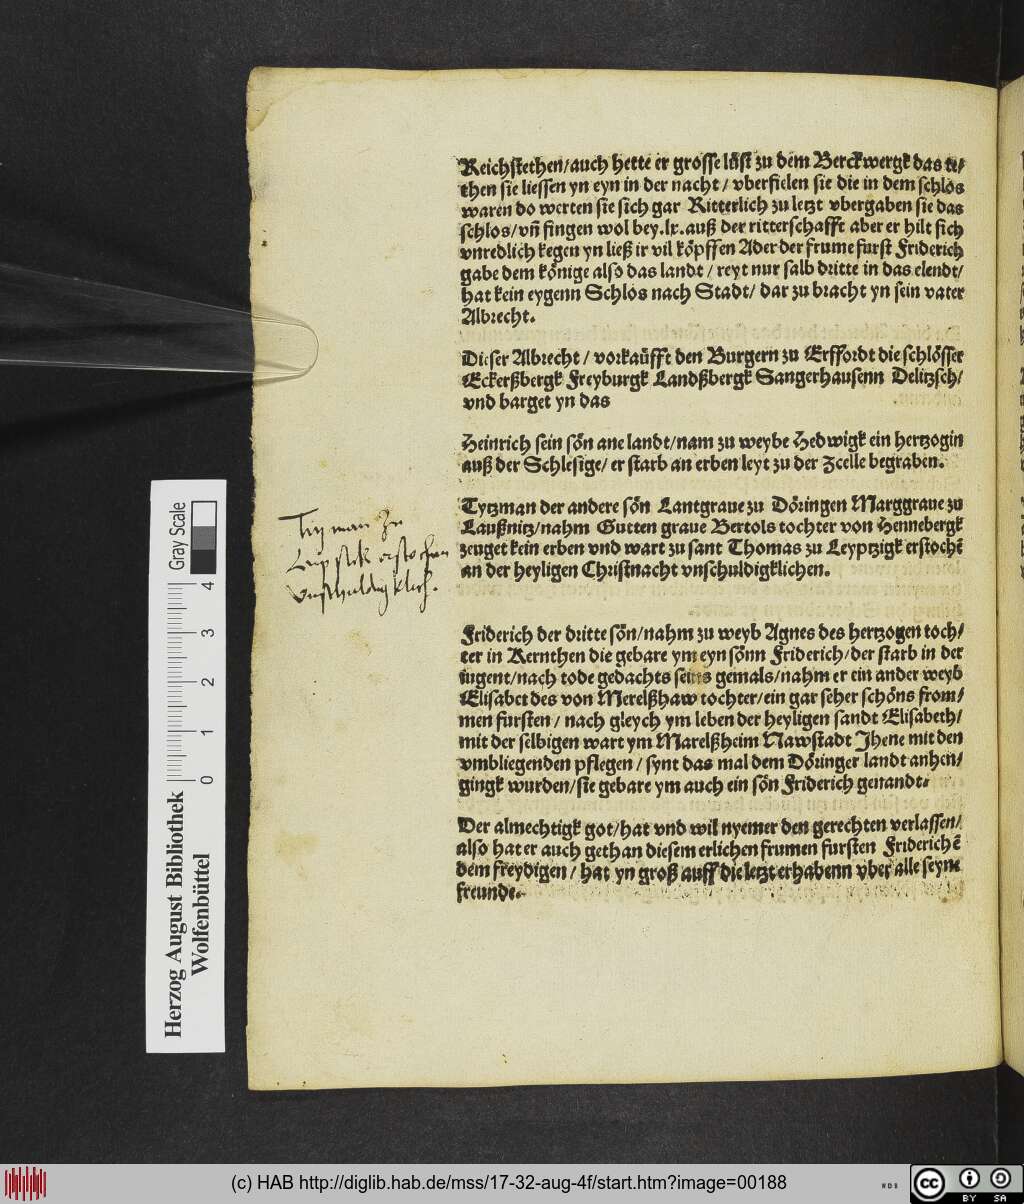 Reichstethen/ auch hette er grosse lüst zu dem Berckwergk das te/
then sie liessen yn eyn in der nacht / vberfielen sie die in dem schlos
waren do werten sie sich gar Ritterlich zu letzt vbergaben sie das
schlos/ vñ fingen wol bey .lx. auß der ritterschafft aber er hilt sich
vnredlich kegen yn ließ ir vil köpffen Ader der frume furst Friderich
gabe dem könige also das landt / reyt nur salb dritte in das elendt/
hat kein eygenn Schlos nach Stadt/ dar zu bracht yn sein vater
Albrecht.
Dieser Albrecht / vorkaüfft den Burgern zu Erffordt die schlösser
Eckerßbergk Freyburgk Landßbergk Sangerhausenn Delitzsch/
vnd barget yn das
Heinrich sein sön ane landt/ nam zu weybe Hedwigk ein hertzogin
auß der Schlesige/ er starb an erben leyt zu der Zcelle begraben.
Tytzman der andere sön Lantgraue zu Döringen Marggraue zu
Laußnitz/ nahm Gutten graue Bertols tochter von Hennebergk
zeuget kein erben vnd wart zu sant Thomas zu Leyptzigk erstochē
an der heyligen Christnacht vnschuldigklichen.
Tyzman zu
Leipstzk erstochen
vnschuldigklich.
Friderich der dritte sön/ nahm zu weyb Agnes des hertzogen toch/
ter in Kernthen die gebare ym eyn sönn Friderich/ der starb in der
iugent/ nach tode gedachts seins gemals/ nahm er ein ander weyb
Elisabet des von Merelßhaw tochter/ ein gar seher schöns from/
men fursten / nach gleych ym leben der heyligen sandt Elisabeth/
mit der selbigen wart ym Marelßheim Nawstadt Jhene mit den
vmbliegenden pflegen / synt das mal dem Döringer landt anhen/
gingk wurden/ sie gebare ym auch ein sön Friderich genandt.
Der almechtigk got/ hat vnd wil nyemer den gerechten verlassen/
also hat er auch gethan diesem erlichen frumen fursten Friderichē
dem freydigen / hat yn groß auff die letzt erhabenn vber alle seyne
freunde.
Gray Scale
4 3 2 1 0
Herzog August Bibliothek
Wolfenbüttel
(c) HAB http://diglib.hab.de/mss/17-32-aug-4f/start.htm?image=00188
RDB
cc BY SA